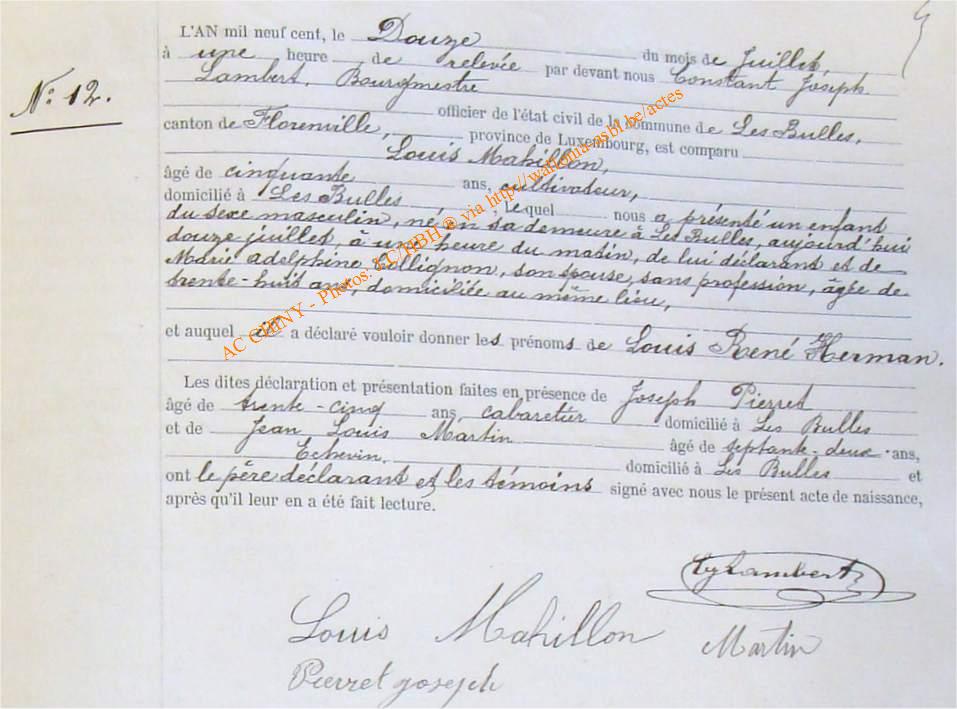 L'AN mil neuf cent, le Douze du mois de Juillet,
à une heure de relevée par devant nous Constant Joseph
Lambert, Bourgmestre
officier de l'état civil de la commune de Les Bulles,
N° 12.
canton de Florenville, province de Luxembourg, est comparu
Louis Mahillon,
âgé de cinquante ans, cultivateur,
domicilié à Les Bulles, lequel nous a présenté un enfant
du sexe masculin, né en sa demeure à Les Bulles, aujourd'hui
douze juillet, à une heure du matin, de lui déclarant et de
Marie Adelphine Collignon, son épouse, sans profession, âgée de
trente-huit ans, domiciliée au même lieu,
et auquel il a déclaré vouloir donner les prénoms de Louis René Herman.
Les dites déclaration et présentation faites en présence de Joseph Pierret
âgé de trente-cinq ans, cabaretier domicilié à Les Bulles
et de Jean Louis Martin âgé de septante-deux ans,
Echevin, domicilié à Les Bulles et
ont le père déclarant et les témoins signé avec nous le présent acte de naissance,
après qu'il leur en a été fait lecture.
AC CHINY - Photos: LC/HBH ® via http://wallonia-asbl.be/actes
Lambert
Louis Mahillon Martin
Pierret joseph